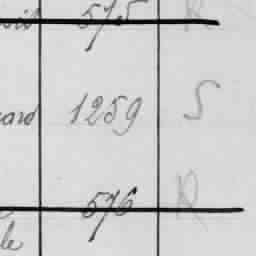 575 R
ard 1259 S
576 R
le